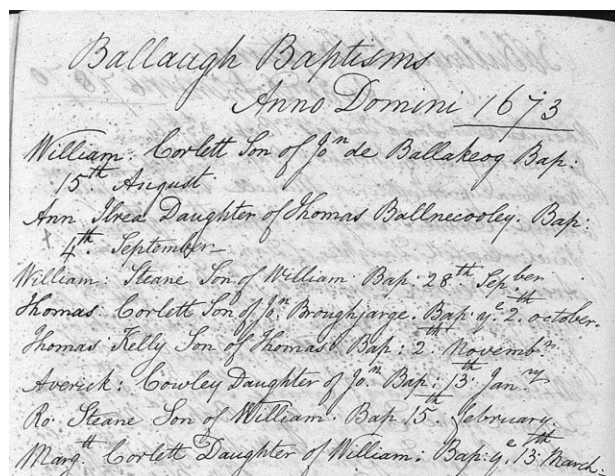 Ballaugh Baptisms
Anno Domini 1673
William: Corlett Son of Jon de Ballakeog Bap:
15th August
Ann Ilrea Daughter of Thomas Ballnecooley. Bap:
4th September
William: Steane Son of William Bap. 28th Sepber
Thomas: Corlett Son of Jon Broughjarge. Bap: ye 2th october.
Thomas: Kelly Son of Thomas: Bap: 2th Novembr
Averick: Cowley Daughter of Jon Bap: 13th Janry
Ro: Steane Son of William. Bap 15th february
Margtt Corlett Daughter of William: Bap: ye 13th March.